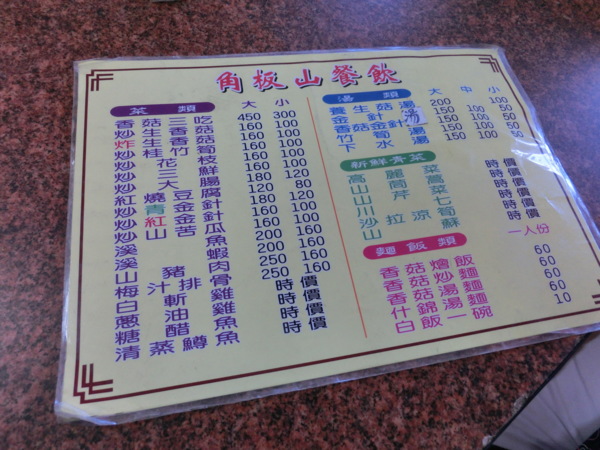 角板山餐飲
菜類 大 小
香菇三吃 450 300
炒生香菇 160 100
炸生香菇 160 100
炒桂竹筍 160 100
炒花枝 160 100
炒三鮮 180 120
炒大腸 120 80
紅燒豆腐 180 120
炒青金針 160 100
炒紅金針 160 100
炒山苦瓜 160 100
溪魚 200 160
溪蝦 200 160
山豬肉 250 160
梅汁排骨 250 160
白斬雞 時價
蔥油雞 時價
糖醋魚 時價
清蒸鱒魚 時價
湯類 大 中 小
養生菇湯 200 100
香菇針湯 150 100 50
金針湯 150 100 50
竹筍湯 150 100 50
下水湯 150 100 50
新鮮青菜
高麗菜 時價
山茼蒿 時價
山芹菜 時價
川七 時價
沙拉筍 時價
山涼蘇 時價
麵飯類 一人份
香菇燴飯 60
香菇炒麵 60
香菇湯麵 60
什錦湯麵 60
白飯一碗 10